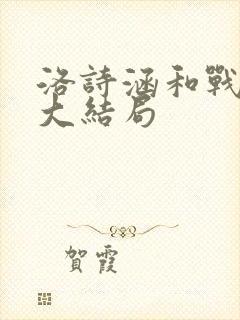 洛詩涵和戰
大結局
賀霞